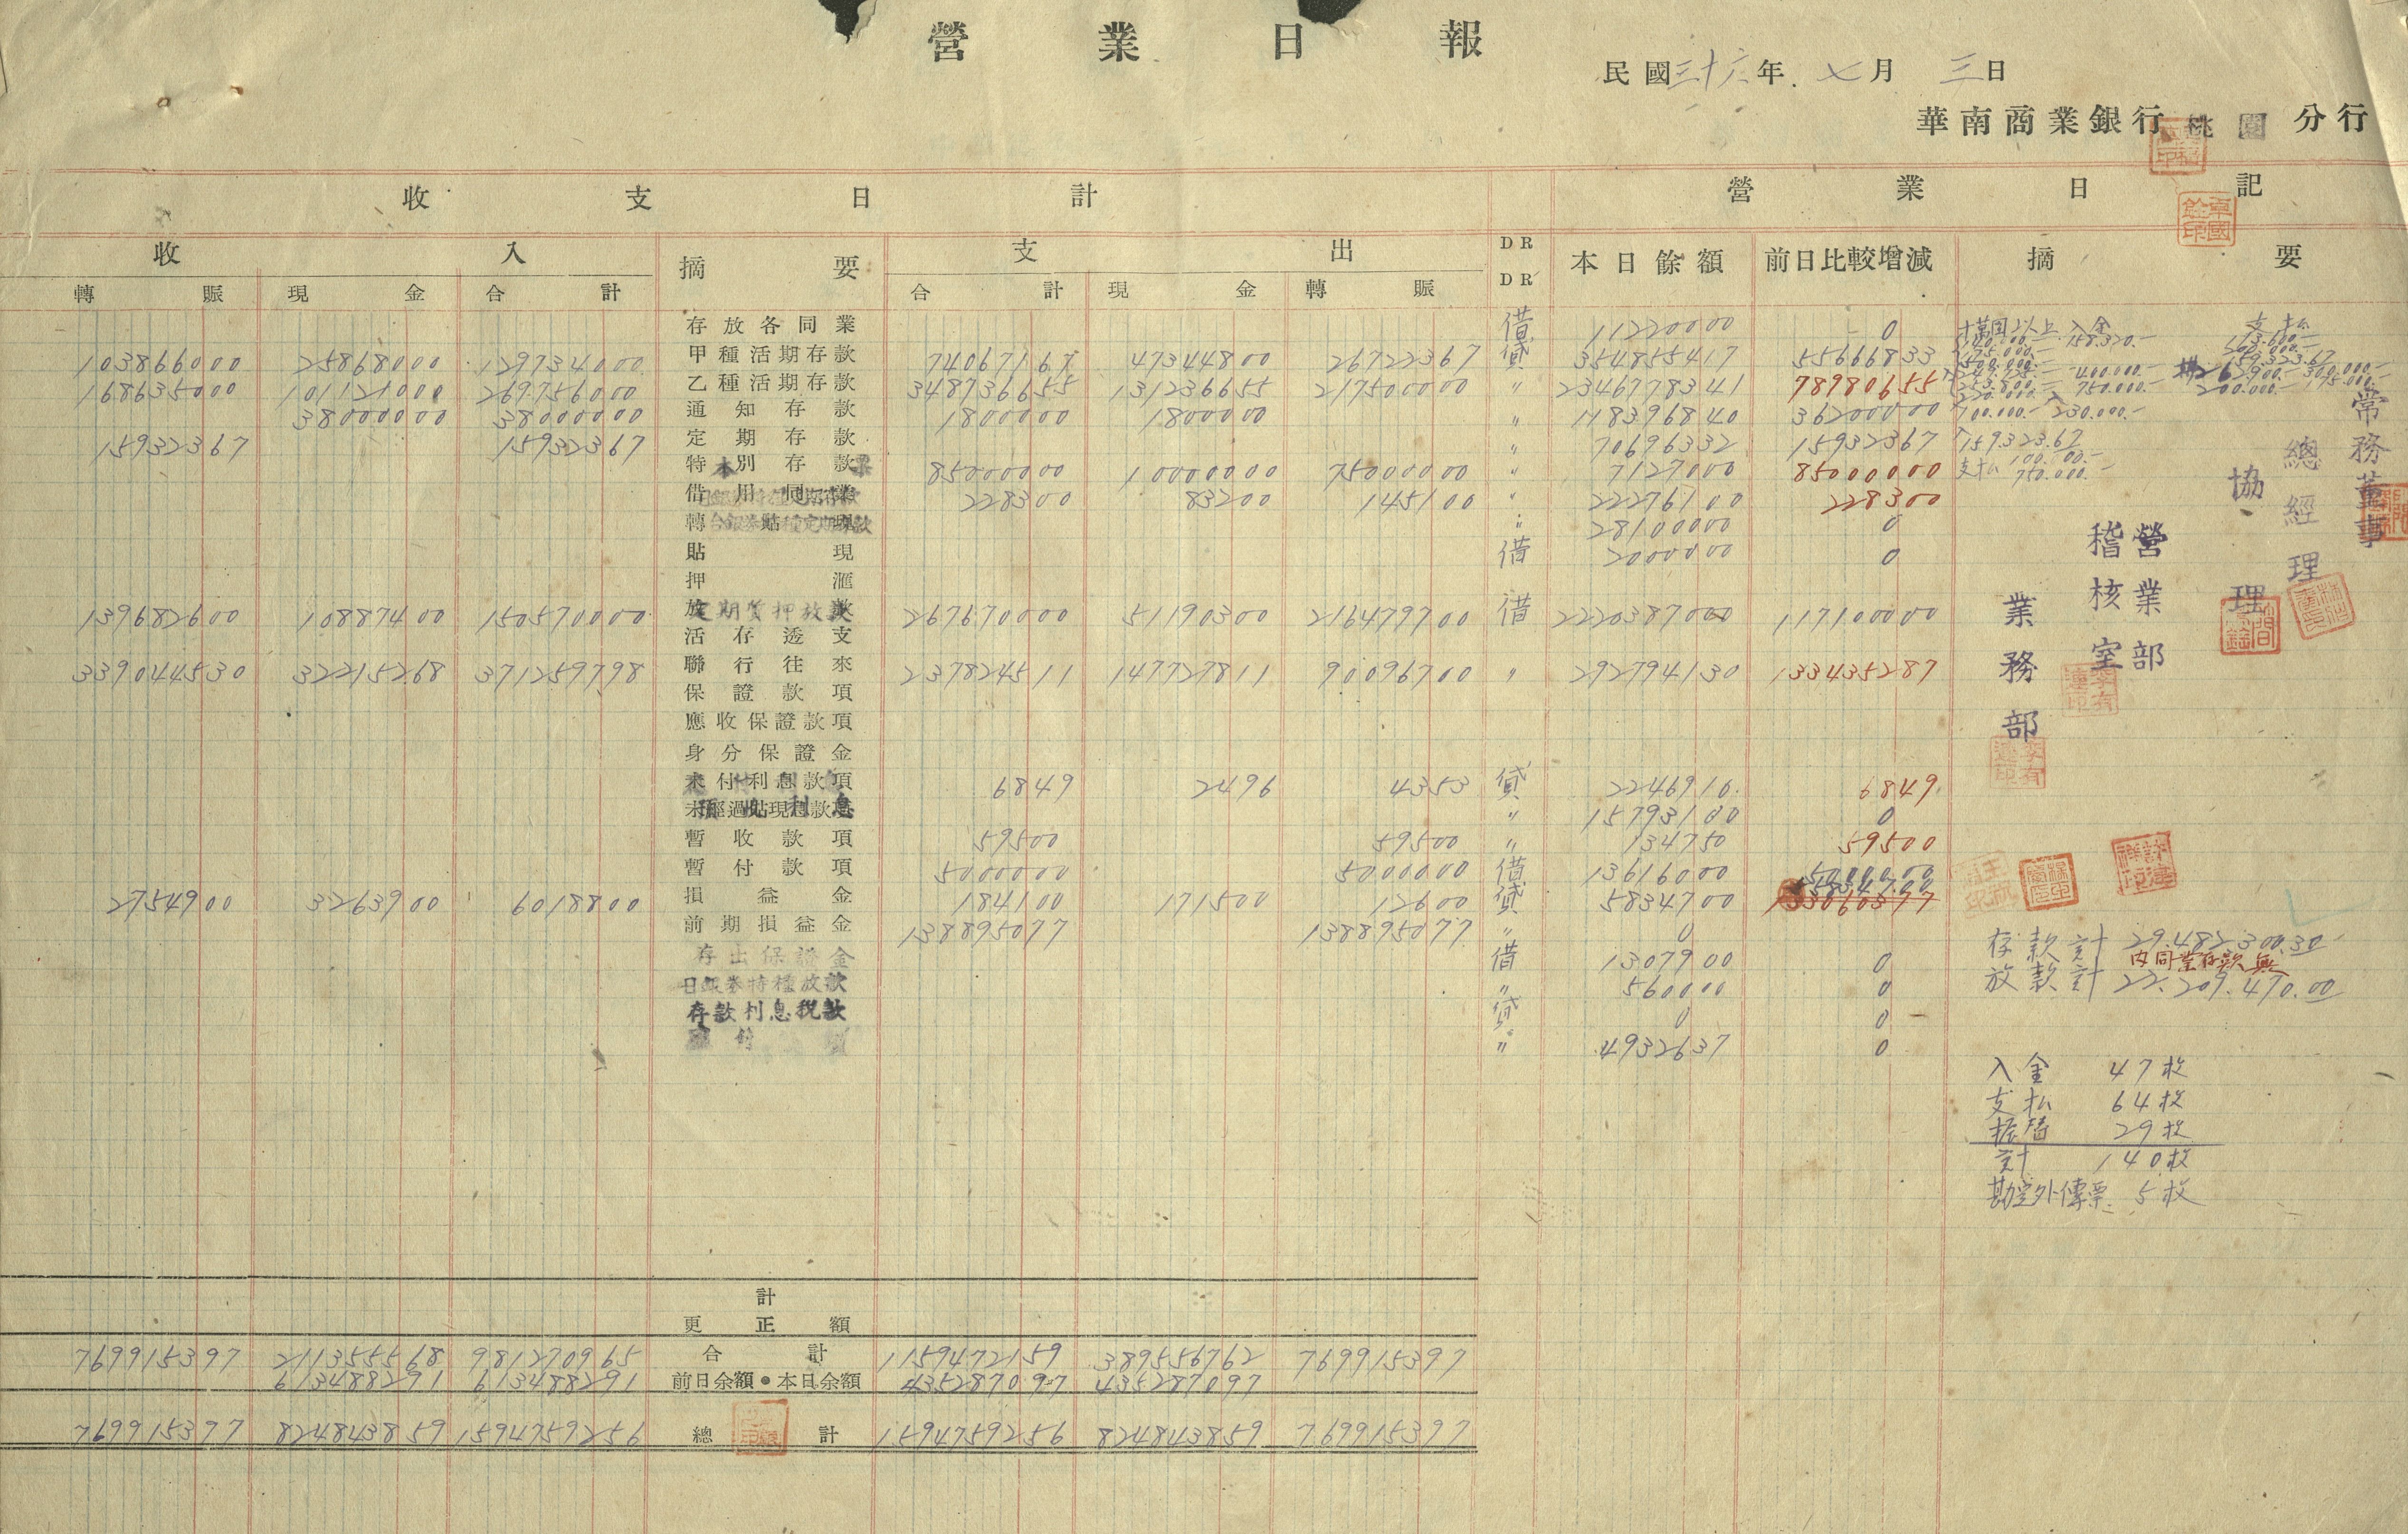 營業日報
民國三十六年七月三日
華南商業銀行桃園分行
收支日計
營業日記
收入 摘要 支出 DR DR 本日餘額 前日比較增減 摘要
轉賬 現金 合計 合計 現金 轉賬
存放各同業 借 11220000 0
103866000 25868000 129734000 甲種活期存款 74067167 47344800 26722367 貸 354855417 55666833
168635000 101121000 269756000 乙種活期存款 348736655 131236655 217500000 〃 2346778341 78980655
38000000 38000000 通知存款 1800000 1800000 〃 118396840 36200000
15932367 15932367 定期存款 〃 70696332 15932367
特別存款 85000000 10000000 75000000 〃 7127000 85000000
借用同業 228300 83200 145100 〃 22276100 228300
轉貼現 〃 28100000 0
貼現 借 2000000 0
押滙
139682600 10887400 150570000 定期質押放款 267670000 51190300 216479700 借 2220387000 117100000
活存透支
339044530 32215268 371259798 聯行往來 237824511 147727811 90096700 〃 292794130 133435287
保證款項
應收保證款項
身分保證金
未付利息款項 6849 2496 4353 貸 2246910 6849
〃 15793100 0
暫收款項 59500 59500 〃 134750 59500
暫付款項 5000000 5000000 借 13616000 5000000
2754900 3263900 6018800 損益金 184100 171500 12600 貸 5834700 5834700
前期損益金 138895077 138895077 〃 0
存出保證金 借 1307900 0
日銀券特種放款 〃 560000 0
存款利息稅款 貸 0 0
〃 4932637 0
十萬円以上 入金 支払
159323.67
支払 100.000.-
750.000.-
常務董事
總經理
協理
營業部
稽核室
業務部
存款計 29.482.300.30
內同業存款無
放款計 22.209.470.00
入金 47枚
支払 64枚
振替 29枚
計 140枚
勘定外傳票 5枚
計
更正額
769915397 211355568 981270965 合計 1159472159 389556762 769915397
613488291 613488291 前日余額•本日余額 435287097 435287097
769915397 824843859 1594759256 總計 1594759256 824843859 769915397